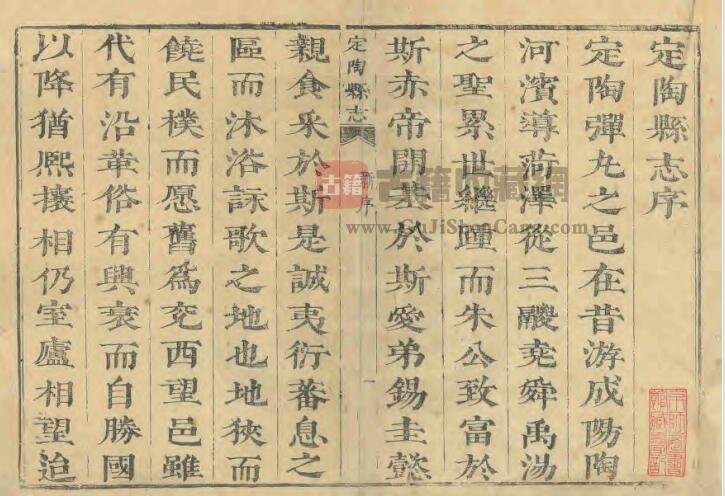 定陶縣志序
定陶彈丸之邑在昔游成陽陶
河濱導菏澤從三朡堯舜禹湯
之聖累世繼踵而朱公致富於
斯赤帝開基於斯愛弟錫圭懿
定陶縣志
序
一
親食采於斯是誠夷衍蕃息之
區而沐浴詠歌之地也地狹而
饒民樸而愿舊為兗西望邑雖
代有沿革俗有興衰而自勝國
以降猶熙攘相仍室廬相望迨
古籍
古籍收藏網
www.GuJiShouCang.com